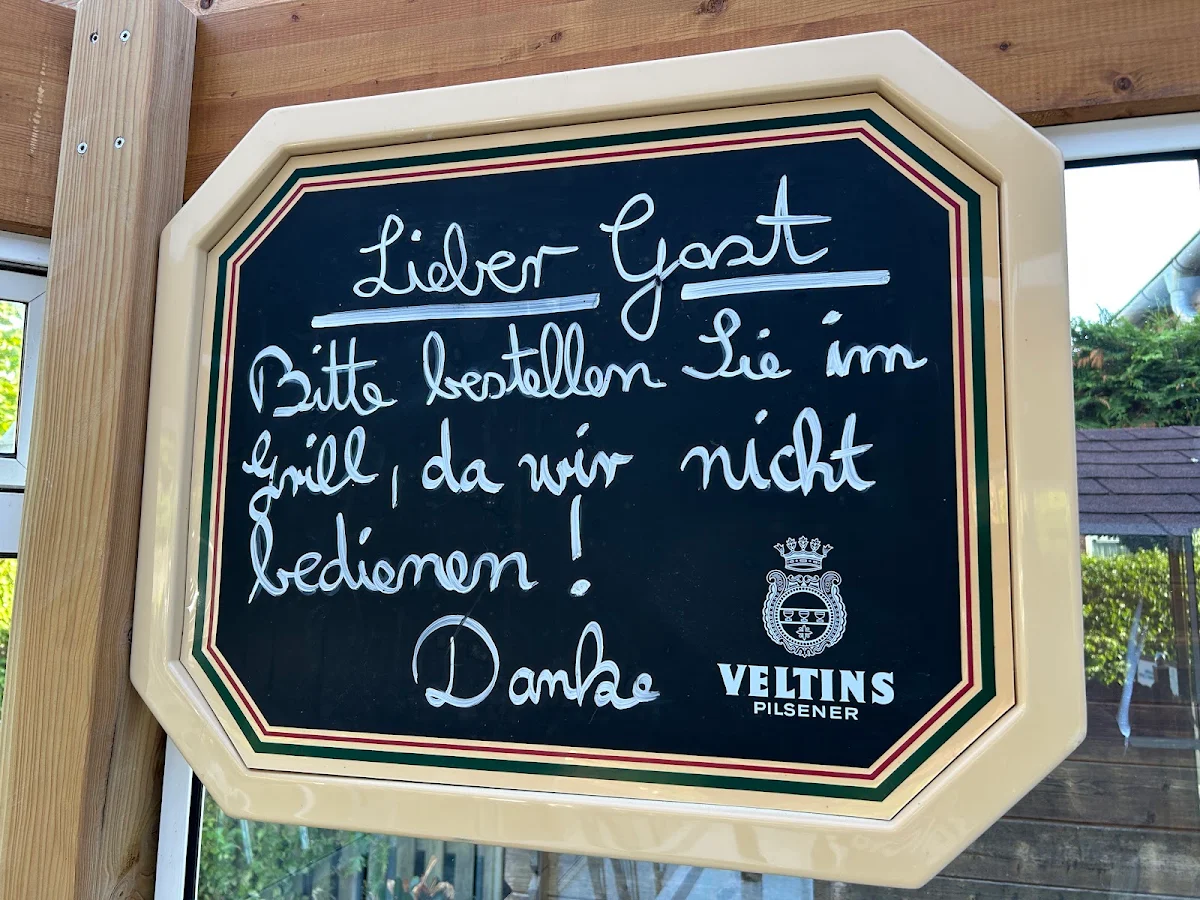 Lieber Gast
Bitte bestellen Sie im
Grill, da wir nicht
bedienen!
Danke
VELTINS
PILSENER